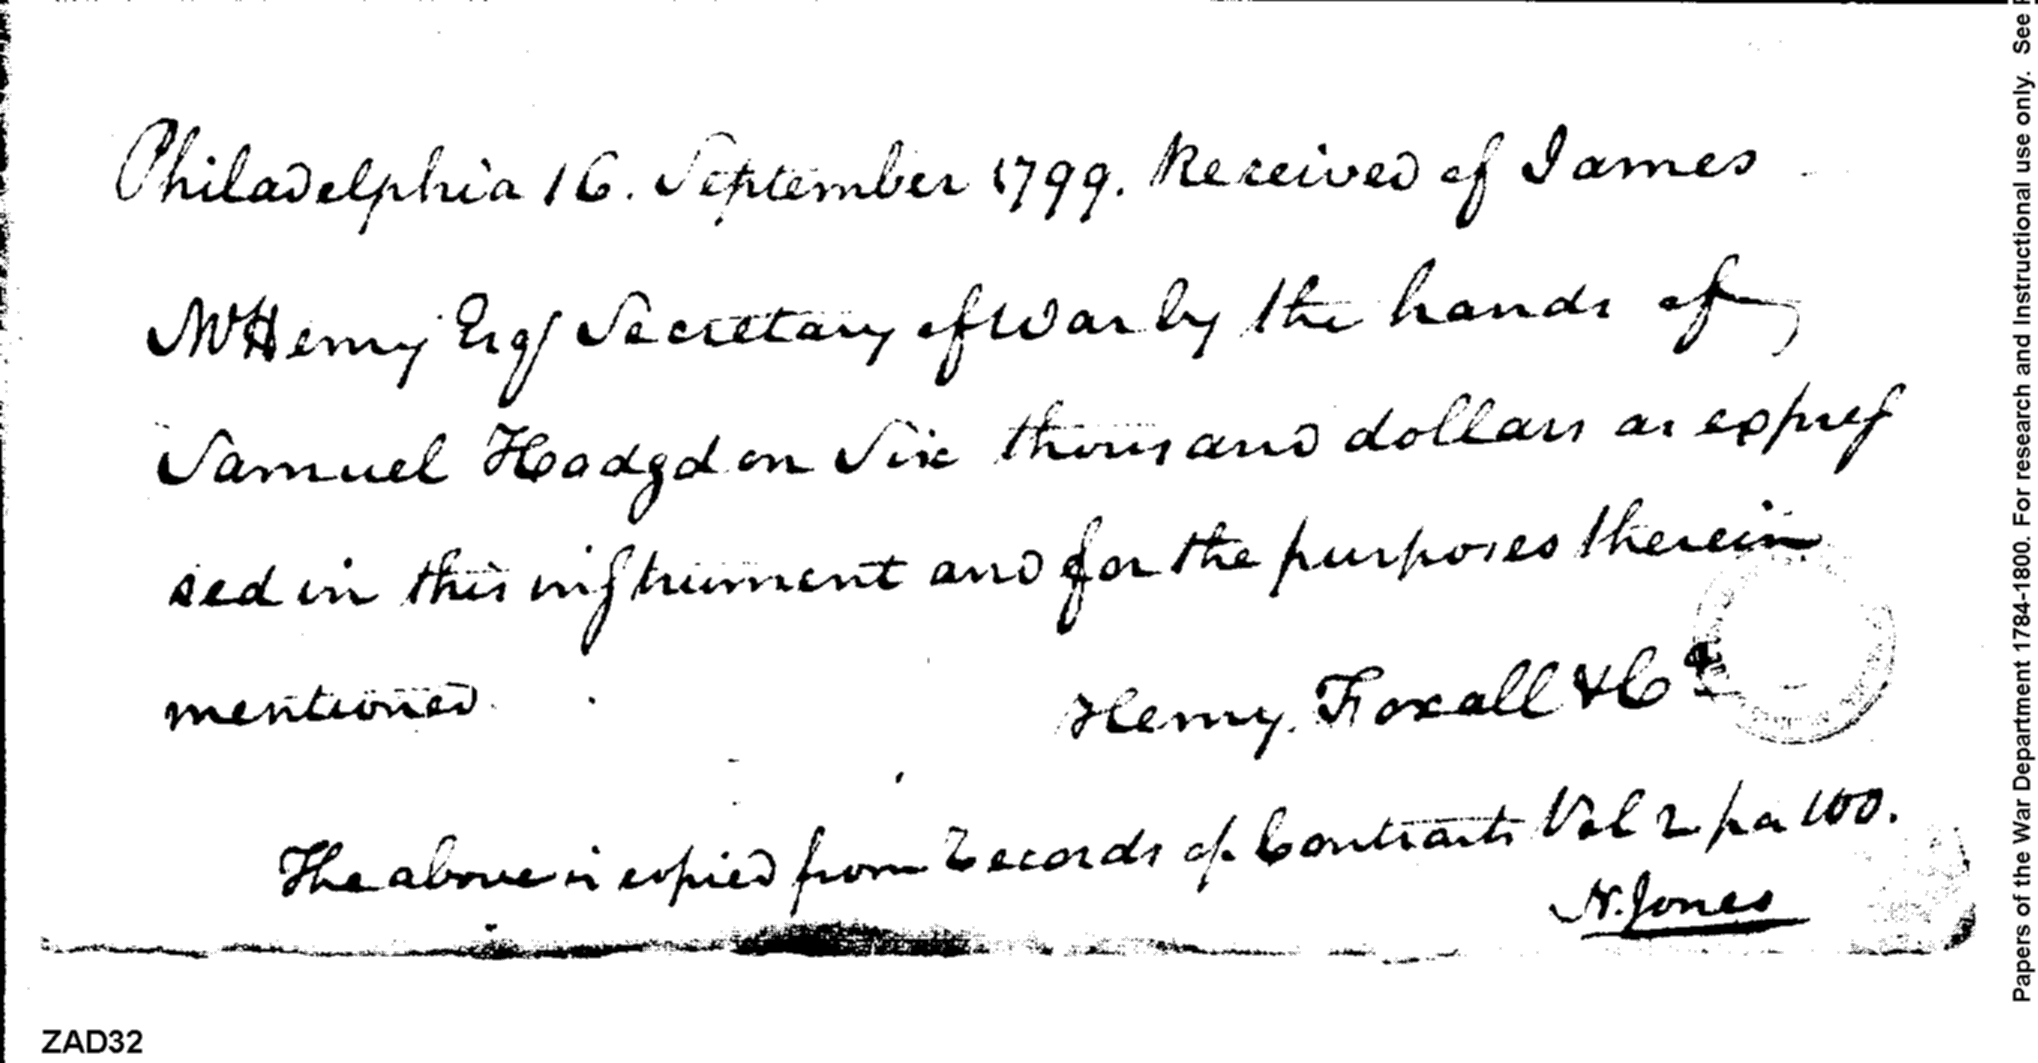 Philadelphia 16. September 1799. Received of James
McHenry Esqr Secretary of War by the hands of
Samuel Hodgdon Six thousand dollars as expres
sed in this instrument and for the purposes therein
mentioned.
Henry Foxall & Co
The above is copied from Records of Contracts Vol 2 pa 100.
N. Jones
ZAD32
Papers of the War Department 1784-1800. For research and Instructional use only. See